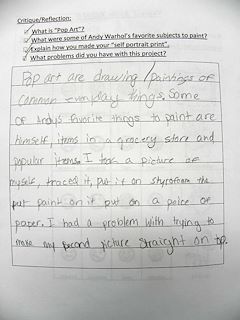 Critique/Reflection:
What is "Pop Art"?
What were some of Andy Warhol's favorite subjects to paint?
Explain how you made your "self portrait print".
What problems did you have with this project?
Pop art are drawing / paintings of
common everyday things. Some
of Andys favorite things to paint are
himself, items in a grocery store and
popular items. I took a picture of
myself, traced it, put it on styrofoam the
put paint on it put on a peice of
paper. I had a problem with trying to
make my second picture straight on top.